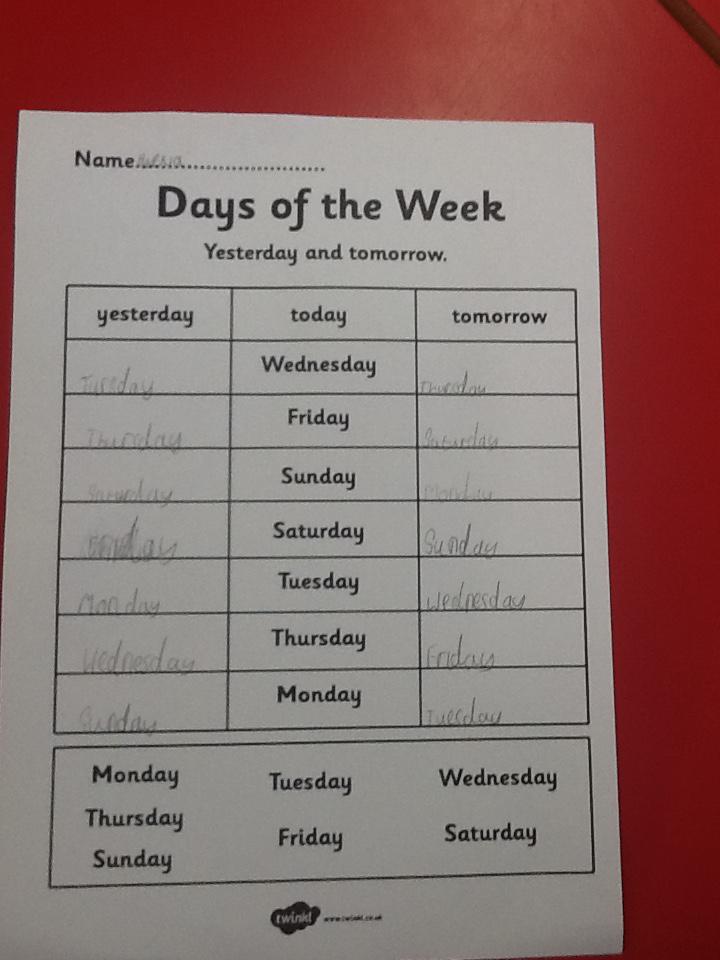 Name
Days of the Week
Yesterday and tomorrow.
yesterday today tomorrow
Tuesday Wednesday Thursday
Thursday Friday Saturday
Saturday Sunday Monday
Friday Saturday Sunday
Monday Tuesday Wednesday
Wednesday Thursday Friday
Sunday Monday Tuesday
Monday Tuesday Wednesday
Thursday Friday Saturday
Sunday
twinkl www.twinkl.co.uk